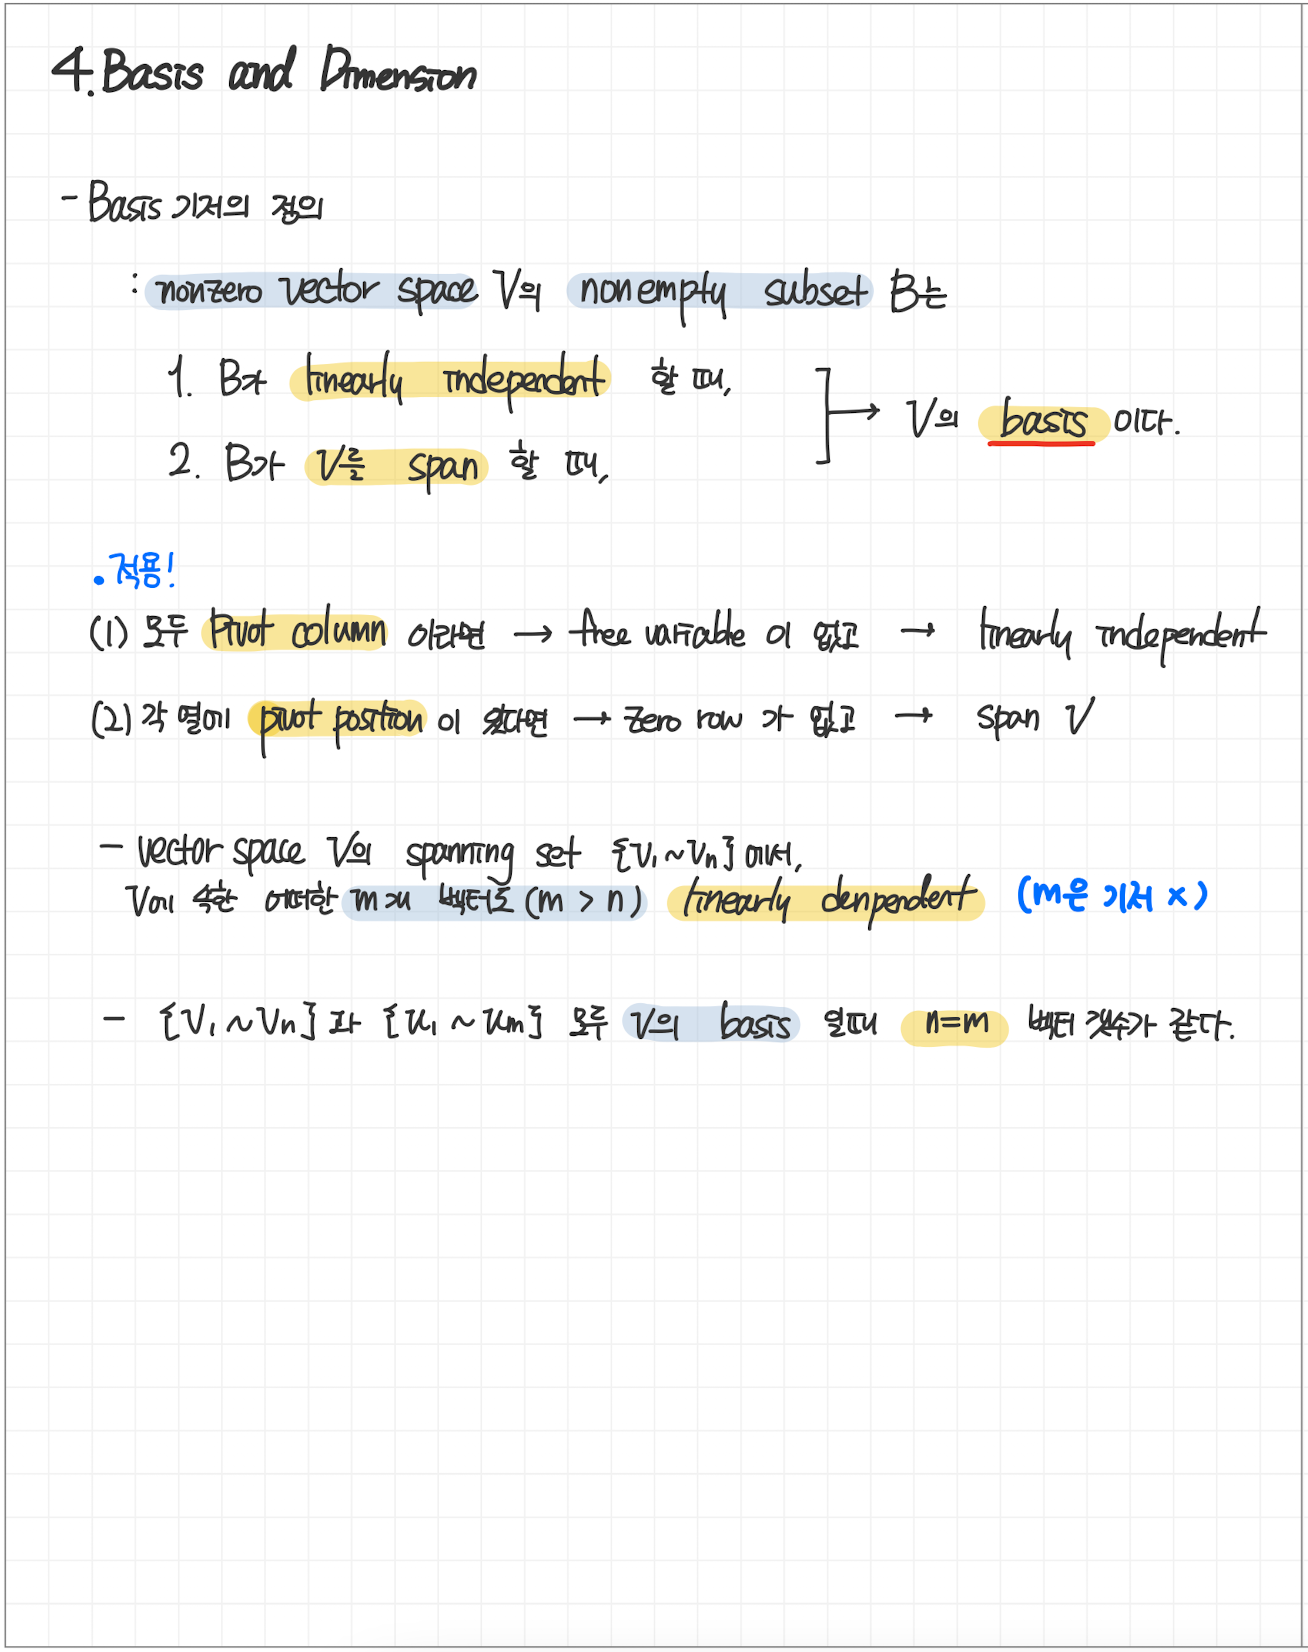 4. Basis and Dimension
- Basis 기저의 정의
: nonzero vector space V의 nonempty subset B는
1. B가 linearly independent 할 때,
2. B가 V를 span 할 때,
→ V의 basis 이다.
• 적용!
(1) 모두 Pivot column 이라면 → free variable 이 없고 → linearly independent
(2) 각 열에 pivot position 이 있다면 → zero row 가 없고 → span V
- vector space V의 spanning set {v₁ ~ vₙ} 에서,
V에 속한 어떠한 m개 벡터도 (m > n) linearly denpendent (m은 기저 x)
- {v₁ ~ vₙ} 과 {u₁ ~ uₘ} 모두 V의 basis 일때 n=m 벡터 갯수가 같다.